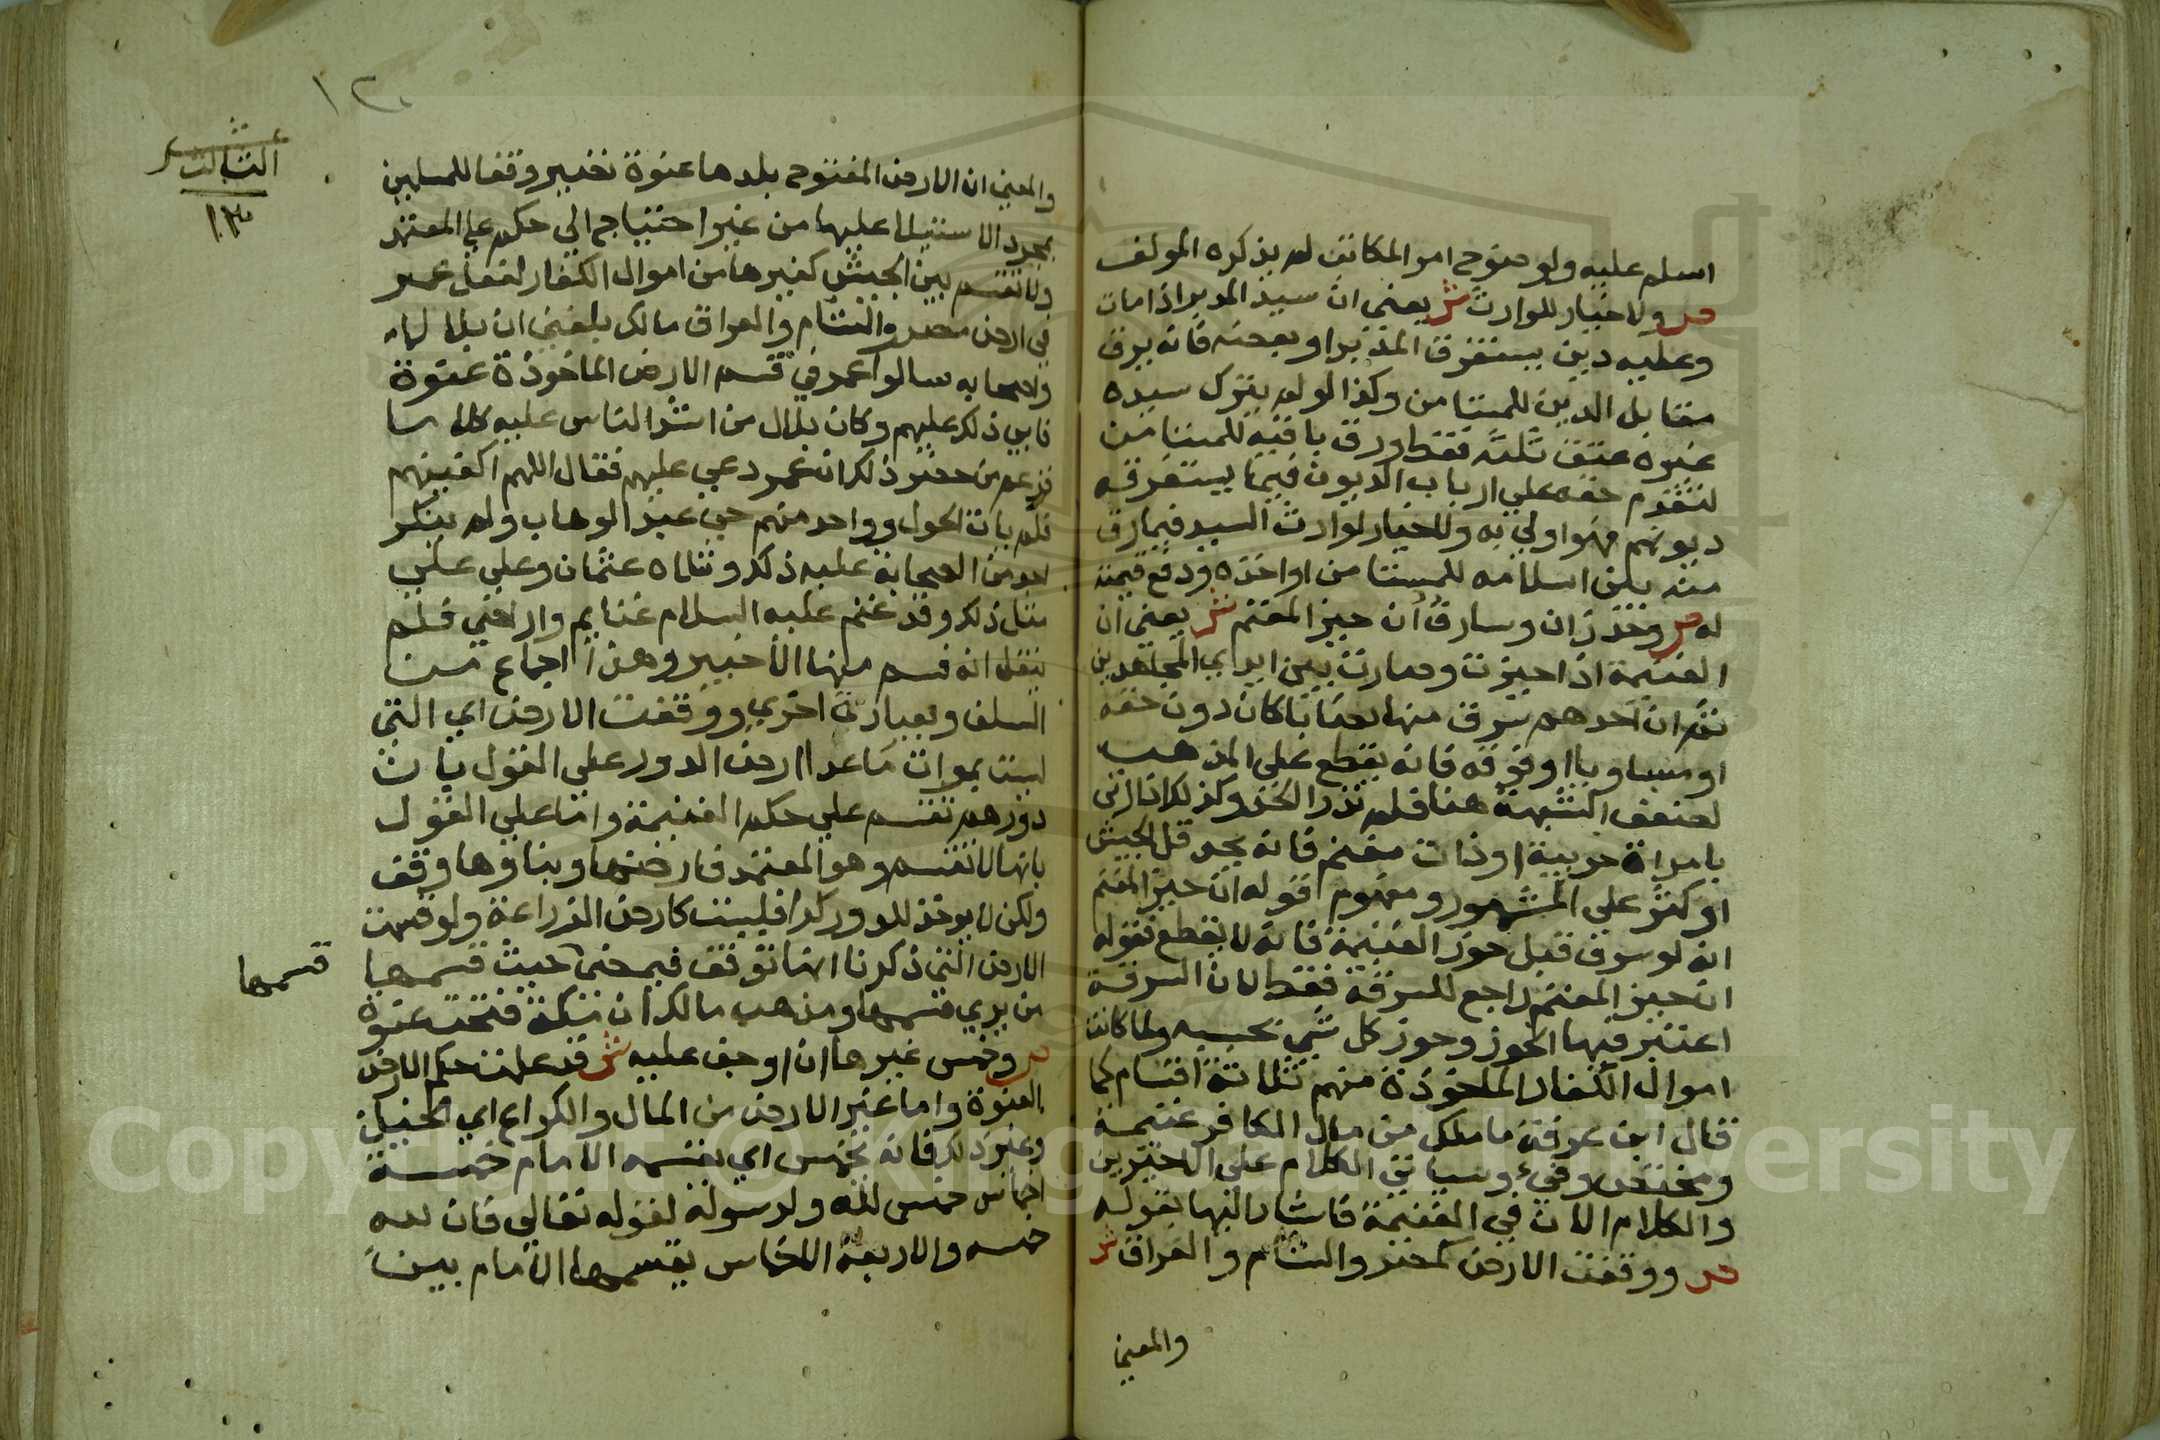 اسلم عليه ولوضوح امر المكاتب لم يذكره المولف
ص ولا خيار للوارث ش يعني ان سيد المدبر اذا مات
وعليه دين يستغرق المدبر او بعضه فانه يرق
مقابل الدين للمستامن وكذا لو لم يترك سيده
غيره عتق ثلثه فقط ورق باقيه للمستامن
لتقدم حقه علي ارباب الديون فيما يستغرقه
ديونهم فهو اولي به ولا خيار لوارث السيد فيما رق
منه بين اسلامه للمستامن او اخذه ودفع قيمته
له ص وحد زان وسارق ان حيز المغنم ش يعني ان
الغنيمة اذا حيزت وصارت بين ايدي المجاهدين
ثم ان احدهم سرق منها نصابا كان دون حقه
او مساويا او فوقه فانه يقطع علي المذهب
لضعف الشبهة هنا فلم تدرا الحد وكذلك اذا زني
بامراة حربية او ذات مغنم فانه يحد قل الجيش
او كثر علي المشهور ومفهوم قوله ان حيز المغنم
انه لو سرق قبل حوز الغنيمة فانه لا يقطع فقوله
ان حيز المغنم راجع للسرقة فقط لان السرقة
اعتبر فيها الحوز وحوز كل شي بحسبه ولما كانت
اموال الكفار الماخوذة منهم ثلاثة اقسام كما
قال ابن عرفة ما ملك من مال الكافر غنيمة
ومختص وفيء وسياتي الكلام علي الاخيرين
والكلام الان في الغنيمة فاشار اليها بقوله
ص ووقفت الارض كمصر والشام والعراق ش
والمعني
١٢٠
الثالث عشر
١٣
والمعني ان الارض المفتوح بلدها عنوة تصير وقفا للمسلمين
بمجرد الاستيلا عليها من غير احتياج الي حكم علي المعتمد
ولا تقسم بين الجيش كغيرها من اموال الكفار لفعل عمر
في ارض مصر والشام والعراق مالك بلغني ان بلالا
واصحابه سالوا عمر في قسم الارض الماخوذة عنوة
فابي ذلك عليهم وكان بلال من اشد الناس عليه كلاما
فزعم من حضر ذلك ان عمر دعي عليهم فقال اللهم اكفنيهم
فلم يات الحول وواحد منهم حي عبد الوهاب ولم ينكر
احد من الصحابة عليه ذلك وتلاه عثمان وعلي علي
مثل ذلك وقد غنم عليه السلام غنايم واراضي فلم
ينقل انه قسم منها الا خيبر وهذا اجماع من
السلف وبعبارة اخري ووقفت الارض اي التي
ليست بموات ما عدا ارض الدور علي القول بان
دورهم تقسم علي حكم الغنيمة واما علي القول
بانها لا تقسم وهو المعتمد فارضها وبناوها وقف
ولكن لا يوخذ للدور كرا فليست كارض الزراعة ولو قسمت
الارض التي ذكرنا انها توقف فيمضي حيث قسمها
قسمها
من يري قسمها ومذهب مالك ان مكة فتحت عنوة
ص وخمس غيرها ان اوجف عليه ش قد علمت حكم الارض
العنوة واما غير الارض من المال والكراع اي الخيل
وغير ذلك فانه يخمس اي يقسمه الامام خمسة
اخماس خمس لله ولرسوله لقوله تعالي فان لله
خمسه والاربعة الاخماس يقسمها الامام بين
Copyright © King Saud University